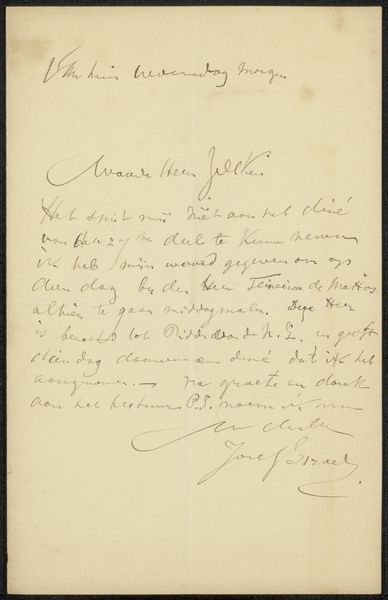 woensdag morgen
Waarde Heer Zilcken
Het spijt mij niet aan het diné
van den 27ste deel te kunnen nemen
ik heb mijn woord gegeven om op
dien dag bij den Heer Teixeira de Mattos
alhier te gaan middagmalen. Deze Heer
is benoemd tot Ridder N. L. en geeft
dien dag daarom een diné dat ik heb
aangenomen. — na groete en dank
aan het bestuur P.S. noem ik mij
Jozef Israels